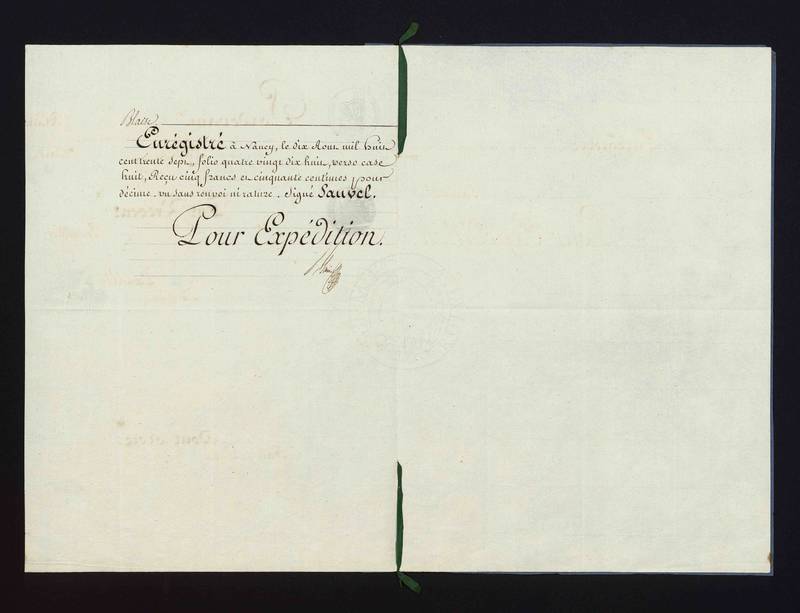 Blaise
Enrégistré à Nancy, le dix Aout mil huit
cent trente sept, folio quatre vingt dix huit, verso case
huit, Reçu cinq francs et cinquante centimes pour
décime. vu sans renvoi ni rature. Signé Sauvel.
Pour Expédition.